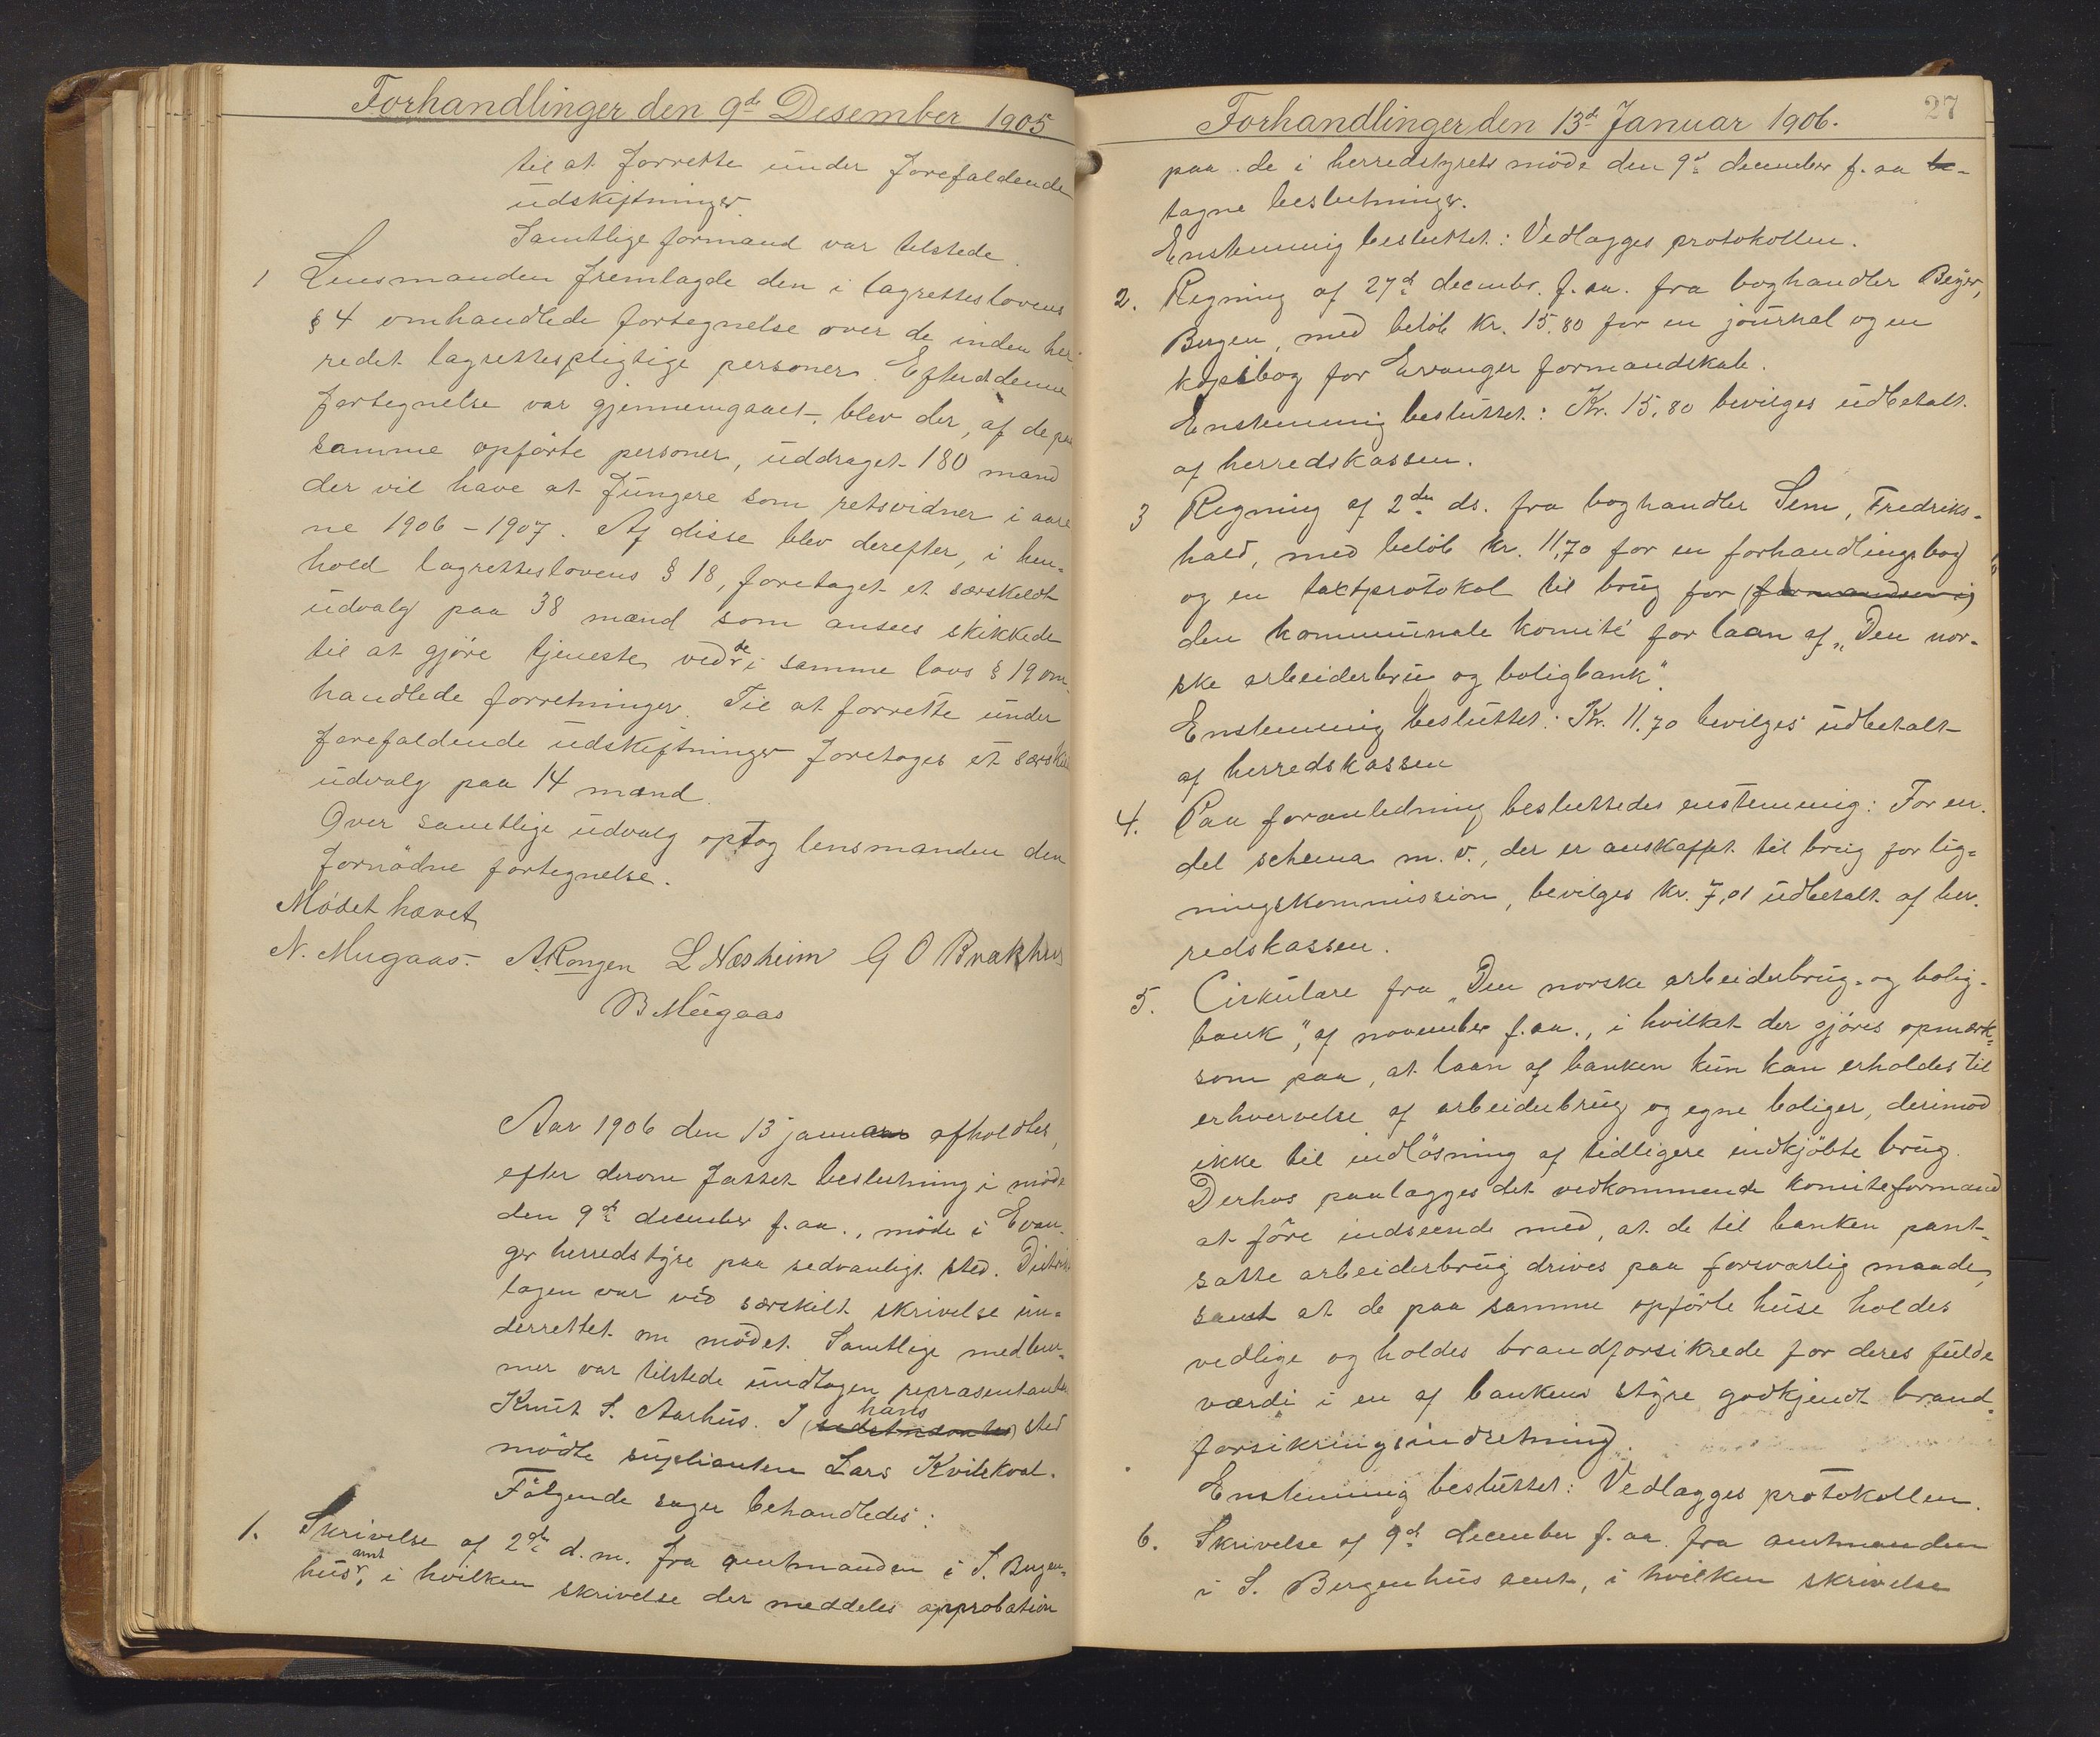 Forhandlinger den 9de Desember 1905
til at forrette under forefaldende
udskiftninger.
Samtlige formænd var tilstede.
1 Lensmanden fremlagde den i lagretteslovens
§ 4 omhandlede fortegnelse over de inden her-
redet lagrettespligtige personer. Efterat denne
fortegnelse var gjennemgaaet, blev der, af de paa
samme opførte personer, uddraget 180 mænd
der vil have at fungere som retsvidner i aare
ne 1906 - 1907. Af disse blev derefter, i hen-
hold lagretteslovens § 18, foretaget et særskildt
udvalg paa 38 mænd som ansees skikkede
til at gjøre tjeneste ved de i samme lovs § 19 om-
handlede forretninger. Til at forrette under
forefaldende udskiftninger foretoges et særskilt
udvalg paa 14 mænd.
Over samtlige udvalg optog lensmanden den
fornødne fortegnelse.
Mødet hævet
N. Mugaas. A. Rongen L Næsheim G O Brakhus
B Mugaas
Aar 1906 den 13 januar afholdtes,
efter derom fattet beslutning i møde
den 9de december f. aa., møde i Evan-
ger herredstyre paa sedvanligt sted. Distrikts
lægen var ved særskilt skrivelse un-
derrettet om mødet. Samtlige medlem-
mer var tilstede undtagen repræsentanten
Knut S. Aarhus. I hans sted
mødte suplianten Lars Kvitekval.
Følgende sager behandledes:
1. Skrivelse af 2de d. m. fra amtmanden i S. Bergen-
hus amt, i hvilken skrivelse der meddeles approbation
27
Forhandlinger den 13de Januar 1906.
paa de i herredstyrets møde den 9de december f. aa be-
tagne beslutninger.
Enstemmig besluttet: Vedlægges protokollen.
2. Regning af 27de decembr. f. aa. fra boghandler Beyer,
Bergen, med beløb kr. 15.80 for en journal og en
kopibog for Evanger formandskab.
Enstemmig besluttet: Kr. 15,80 bevilges udbetalt
af herredskassen.
3 Regning af 2den ds. fra boghandler Sem, Fredriks-
hald, med beløb kr. 11,70 for en forhandlingsbog
og en taxtprotokol til brug for (formandsen i)
den kommunale komité for laan af „Den nor-
ske arbeiderbrug og boligbank".
Enstemmig besluttet: Kr. 11.70 bevilges udbetalt
af herredskassen
4. Paa foranledning besluttedes enstemmig: For en
del schema m. v., der er anskaffet til brug for lig-
ningskommission, bevilges kr. 7,01 udbetalt af her-
redskassen.
5. Cirkulære fra „Den norske arbeiderbrug- og bolig-
bank", af november f. aa., i hvilket der gjøres opmærk-
som paa, at laan af banken kun kan erholdes til
erhvervelse af arbeiderbrug og egne boliger, derimod
ikke til indløsning af tidligere indkjøbte brug.
Derhos paalægges det vedkommende komiteformand
at føre indseende med, at de til banken pant-
satte arbeiderbrug drives paa forsvarlig maade,
samt at de paa samme opførte huse holdes
vedlige og holdes brandforsikrede for deres fulde
værdi i en af bankens styre godkjendt brand-
forsikringsindretning.
Enstemmig besluttet: Vedlægges protokollen.
6. Skrivelse af 9de december f. aa. fra amtmanden
i S. Bergenhus amt, i hvilken skrivelse